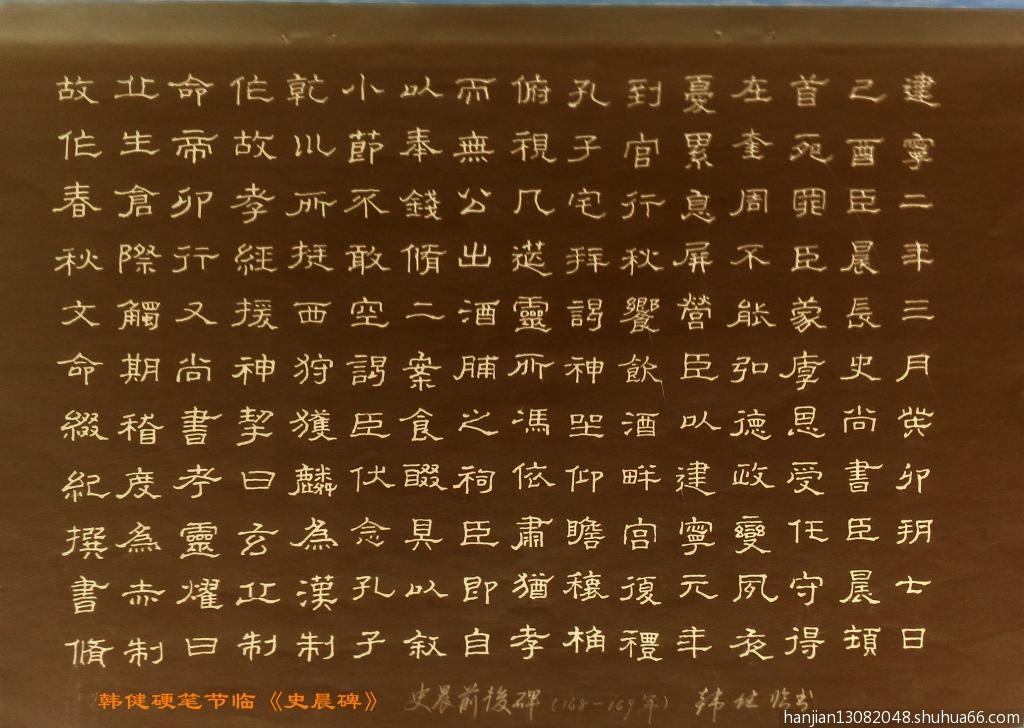 建寧二年三月癸卯朔七日
己酉臣晨長史尚書臣晨頓
首死罪臣蒙厚恩受任守得
在奎周不能弘德政變夙夜
憂累息屏營臣以建寧元年
到官行秋饗飲酒畔宮復禮
孔子宅拜謁神坐仰瞻榱桷
俯視几筵靈所馮依肅猶孝
而無公出酒脯之祠臣即自
以奉錢脩二案食醊具以叙
小節不敢空謁臣伏念孔子
乾川所挺西狩獲麟為漢制
作故孝經援神挈曰玄丘制
命帝卯行又尚書考靈燿曰
丘生倉際觸期稽度為赤制
故作春秋文命綴紀撰書脩
史晨前後碑（168-169年）韩健临书
韩健硬笔节临《史晨碑》
hanjian13082048.shuhua66.com